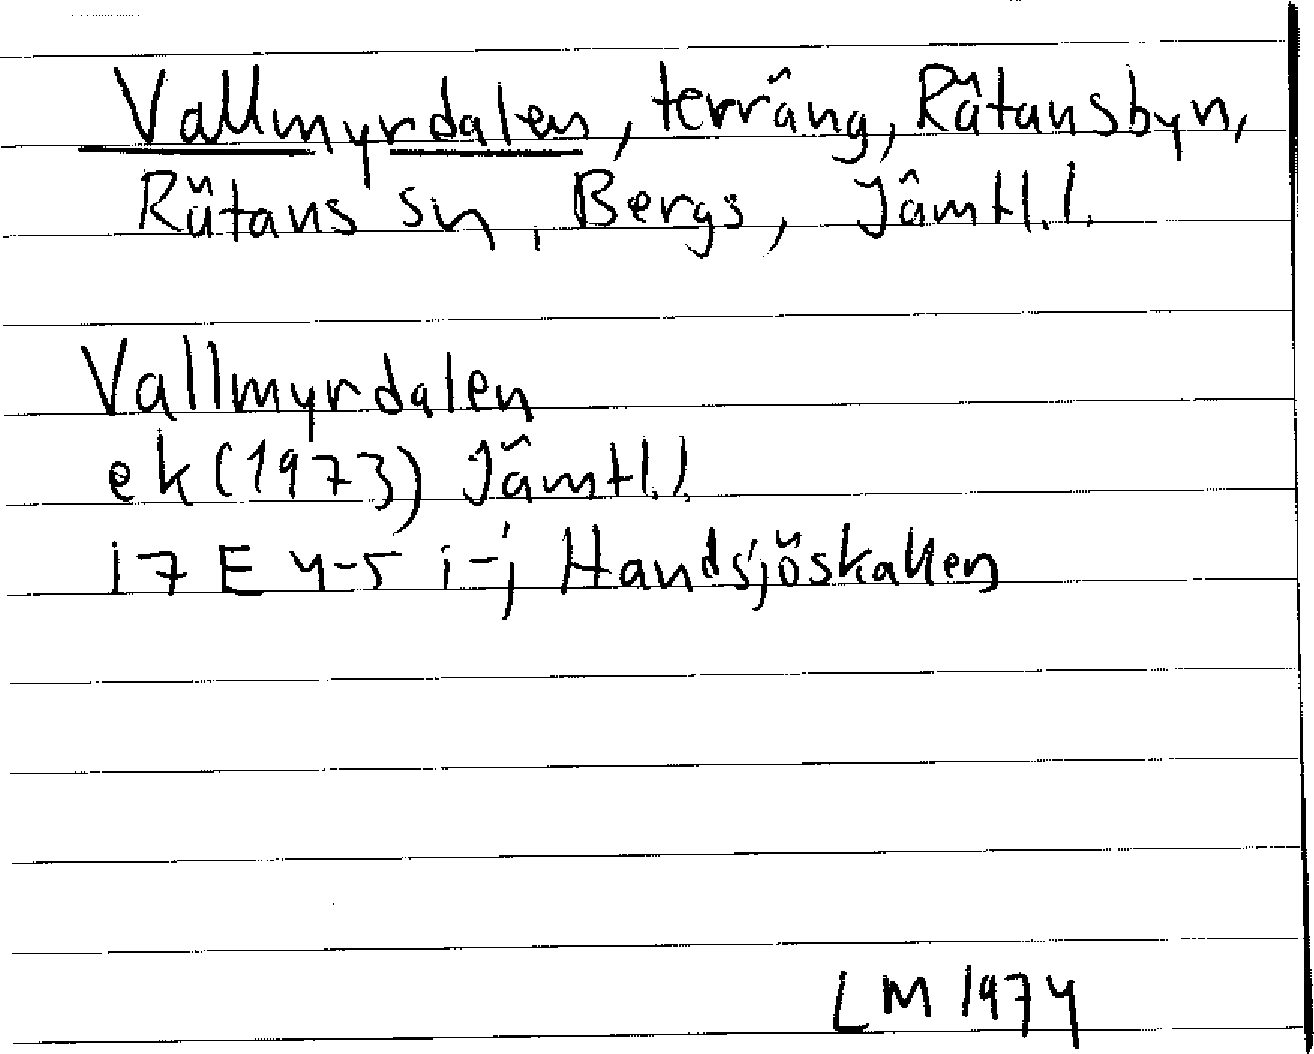 Vallmyrdalen, terräng, Rätansbyn,
Rätans sn, Bergs, Jämtl.l.
Vallmyrdalen
ek (1973) Jämtl.l.
17 E 4-5 i-j Handsjöskallen
LM 1974